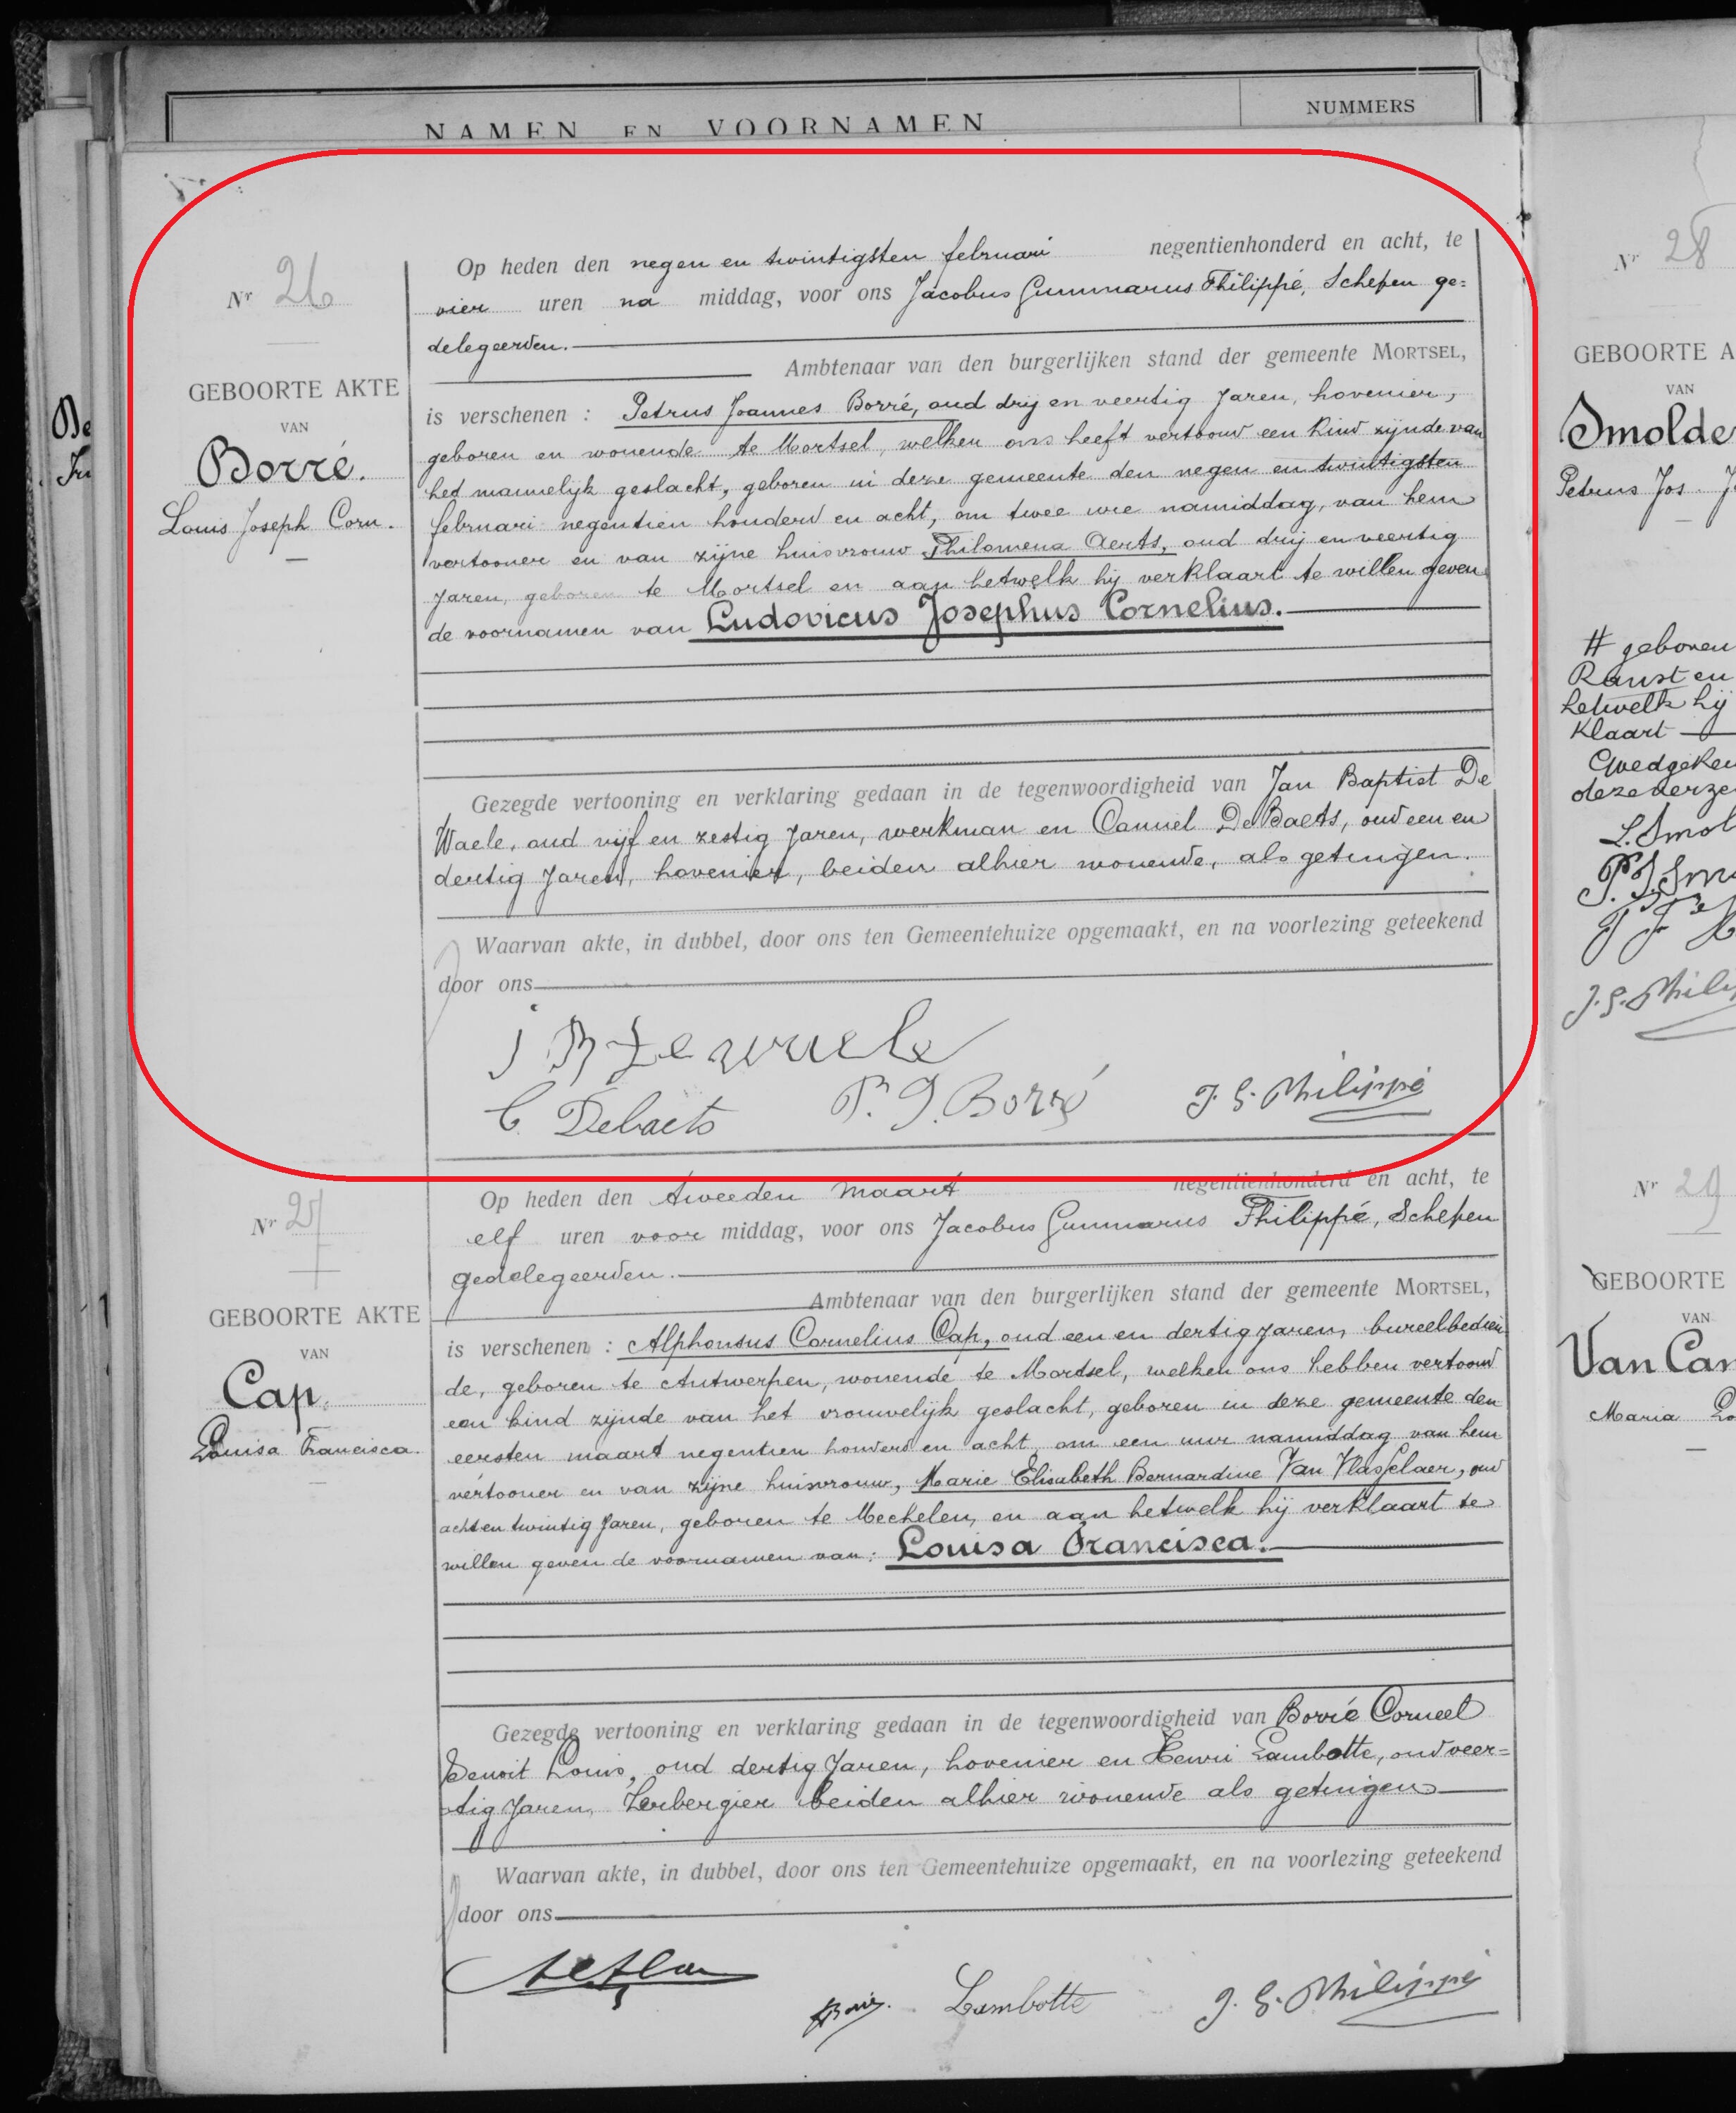 NAMEN EN VOORNAMEN
NUMMERS
Nr 26
GEBOORTE AKTE
VAN
Borré.
Louis Joseph Corn.
Op heden den negen en twintigsten februari negentienhonderd en acht, te
vier uren na middag, voor ons Jacobus Gummarus Philippé, Schepen ge=
delegeerden.
Ambtenaar van den burgerlijken stand der gemeente MORTSEL,
is verschenen : Petrus Joannes Borré, oud drij en veertig jaren, hovenier,
geboren en wonende te Mortsel, welken ons heeft vertoond een kind zijnde van
het mannelijk geslacht, geboren in deze gemeente den negen en twintigsten
februari negentien honderd en acht, om twee ure namiddag, van hem
vertooner en van zijne huisvrouw Philomena Aerts, oud drij en veertig
jaren, geboren te Mortsel en aan hetwelk hij verklaart te willen geven
de voornamen van Ludovicus Josephus Cornelius.
Gezegde vertooning en verklaring gedaan in de tegenwoordigheid van Jan Baptist De
Waele, oud vijf en zestig jaren, werkman en Camiel De Baets, oud een en
dertig jaren, hovenier, beiden alhier wonende, als getuigen.
Waarvan akte, in dubbel, door ons ten Gemeentehuize opgemaakt, en na voorlezing geteekend
door ons
J B De waele
C. Debaets P. J. Borré J. G. Philippé
Nr 27
GEBOORTE AKTE
VAN
Cap.
Louisa Francisca.
Op heden den tweeden maart negentienhonderd en acht, te
elf uren voor middag, voor ons Jacobus Gummarus Philippé, Schepen
gedelegeerden.
Ambtenaar van den burgerlijken stand der gemeente MORTSEL,
is verschenen : Alphonsus Cornelius Cap, oud een en dertig jaren, bureelbedien
de, geboren te Antwerpen, wonende te Mortsel, welken ons hebben vertoond
een kind zijnde van het vrouwelijk geslacht, geboren in deze gemeente den
eersten maart negentien honderd en acht, om een uur namiddag van hem
vertooner en van zijne huisvrouw, Marie Elisabeth Bernardine Van Vlasselaer, oud
acht en twintig jaren, geboren te Mechelen, en aan hetwelk hij verklaart te
willen geven de voornamen van: Louisa Francisca.
Gezegde vertooning en verklaring gedaan in de tegenwoordigheid van Borré Corneel
Benoit Louis, oud dertig jaren, hovenier en Henri Lambotte, oud veer=
tig jaren, herbergier beiden alhier wonende als getuigen
Waarvan akte, in dubbel, door ons ten Gemeentehuize opgemaakt, en na voorlezing geteekend
door ons
Lambotte J. G. Philippé
Nr 28
GEBOORTE A
VAN
Smolde
Petrus Jos. J
# geboren
Ranst en
hetwelk hij
klaart
Goedgekeu
deze verze
L. Smol
P. J. Smo
J. G. Phili
Nr 29
GEBOORTE
VAN
Van Cam
Maria Lo